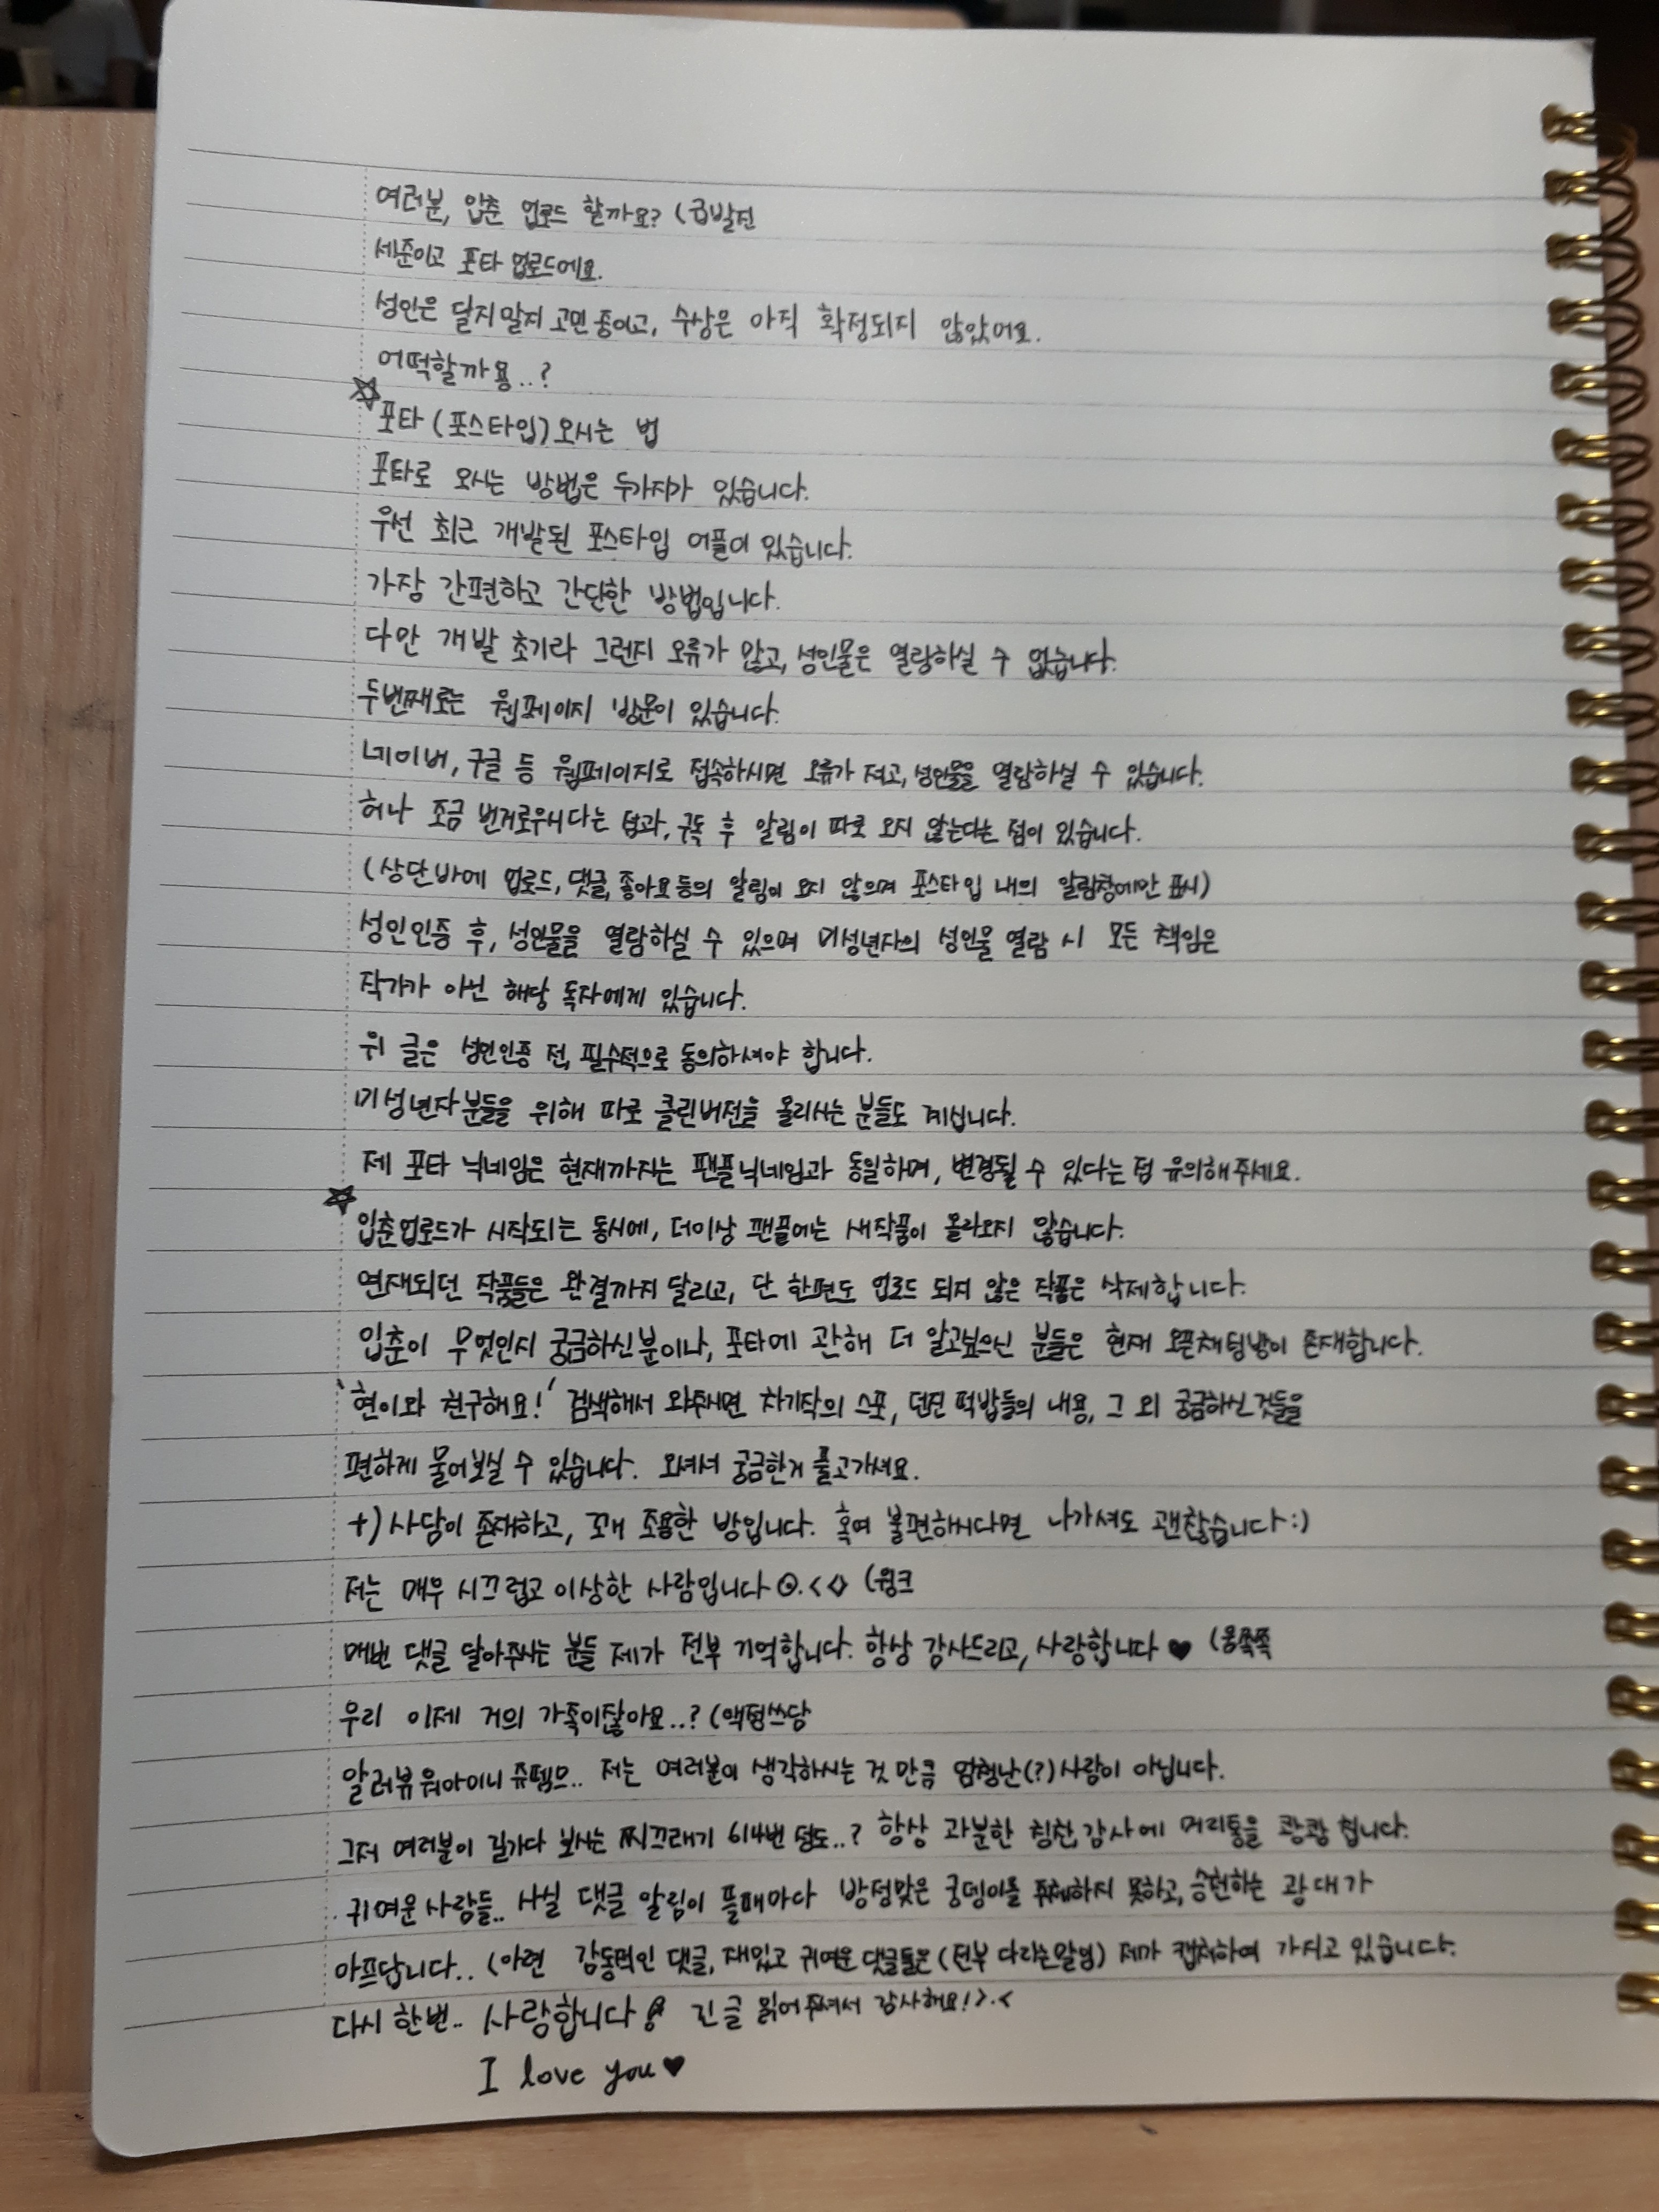 여러분, 입춘 업로드 할까요? (급발진
세준이고 포타 업로드에요.
성인은 달지말지 고민 중이고, 수상은 아직 확정되지 않았어요.
어떡할까용..?
☆포타 (포스타입) 오시는 법
포타로 오시는 방법은 두가지가 있습니다.
우선 최근 개발된 포스타입 어플이 있습니다.
가장 간편하고 간단한 방법입니다.
다만 개발 초기라 그런지 오류가 많고, 성인물은 열람하실 수 없습니다.
두번째로는 웹페이지 방문이 있습니다.
네이버, 구글 등 웹페이지로 접속하시면 오류가 적고, 성인물을 열람하실 수 있습니다.
허나 조금 번거로우시다는 점과, 구독 후 알림이 따로 오지 않는다는 점이 있습니다.
(상단바에 업로드, 댓글, 좋아요 등의 알림이 오지 않으며 포스타입 내의 알림창에만 표시)
성인인증 후, 성인물을 열람하실 수 있으며 미성년자의 성인물 열람 시 모든 책임은
작가가 아닌 해당 독자에게 있습니다.
위 글은 성인인증 전, 필수적으로 동의하셔야 합니다.
미성년자분들을 위해 따로 클린버전을 올리시는 분들도 계십니다.
제 포타 닉네임은 현재까지는 팬플닉네임과 동일하며, 변경될 수 있다는 점 유의해주세요.
☆입춘업로드가 시작되는 동시에, 더이상 팬플에는 새작품이 올라오지 않습니다.
연재되던 작품들은 완결까지 달리고, 단 한편도 업로드 되지 않은 작품은 삭제합니다.
입춘이 무엇인지 궁금하신분이나, 포타에 관해 더 알고싶으신 분들은 현재 오픈채팅방이 존재합니다.
'현이와 친구해요!' 검색해서 와주시면 차기작의 스포, 던진 떡밥들의 내용, 그 외 궁금하신것들을
편하게 물어보실 수 있습니다. 오셔서 궁금한거 풀고가셔요.
+) 사담이 존재하고, 꽤 조용한 방입니다. 혹여 불편하시다면 나가셔도 괜찮습니다 :)
저는 매우 시끄럽고 이상한 사람입니다 ⊙.<◇ (윙크
매번 댓글 달아주시는 분들 제가 전부 기억합니다. 항상 감사드리고, 사랑합니다 ♥ (웅쪽쪽
우리 이제 거의 가족이잖아요..? (액정쓰담
알러뷰워아이니쥬뗌므.. 저는 여러분이 생각하시는 것 만큼 엄청난(?) 사람이 아닙니다.
그저 여러분이 길가다 보시는 찌끄래기 614번 정도..? 항상 과분한 칭찬, 감사에 머리통을 쾅쾅 칩니다.
귀여운 사람들.. 사실 댓글 알림이 뜰때마다 방정맞은 궁뎅이를 주체하지 못하고, 승천하는 광대가
아프답니다.. (아련 감동적인 댓글, 재밌고 귀여운 댓글들은 (전부 다라는말임) 제가 캡쳐하여 가지고 있습니다.
다시 한번.. 사랑합니다 긴글 읽어주셔서 감사해요! >.<
I love you ♥